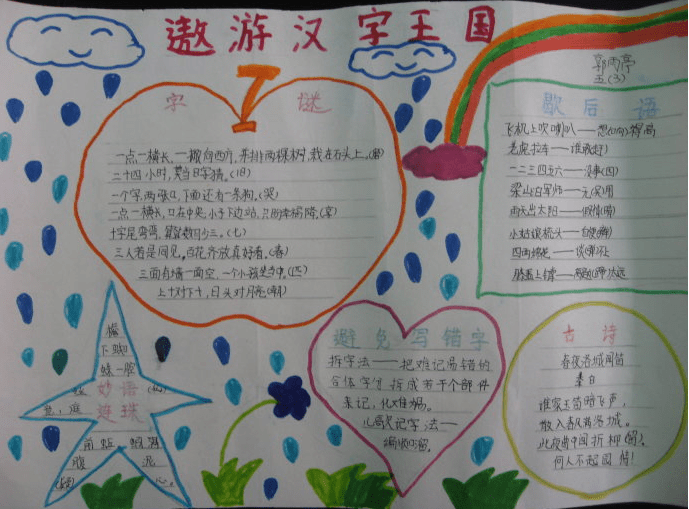 遨游汉字王国
郭雨亭
五(3)
字谜
一点一横长,一撇向西方,来排两棵树,我在石头上。(磨)
二十四小时,莫当日字猜。(旧)
一个字,两张口,下面还有一条狗。(哭)
一点一横长,口在中央,小子下边站,只听来捎(京)
十字尾弯弯,算算数可少三。(七)
三人若是同见,百花齐放真好看。(春)
三面有墙一面空,一个小孩坐当中。(匹)
上十对下十,日头对月亮(朝)
歇后语
飞机上吹喇叭——想(响)得高
老虎拉车——谁敢(赶)
一二三四五六——没事(四)
梁山泊军师——无(吴)用
雨天出太阳——假情(晴)
小姑娘梳头——自便(辫)
四两棉花——谈(弹)
妙语
连珠
避免写错字
拆字法——把难记易错的
合体字 拆成若干个部件
来记,化难为易。
儿歌记字法——
古诗
春夜洛城闻笛
李白
谁家玉笛暗飞声,
散入春风满洛城。
此夜曲中闻折柳(留),
何人不起园情!